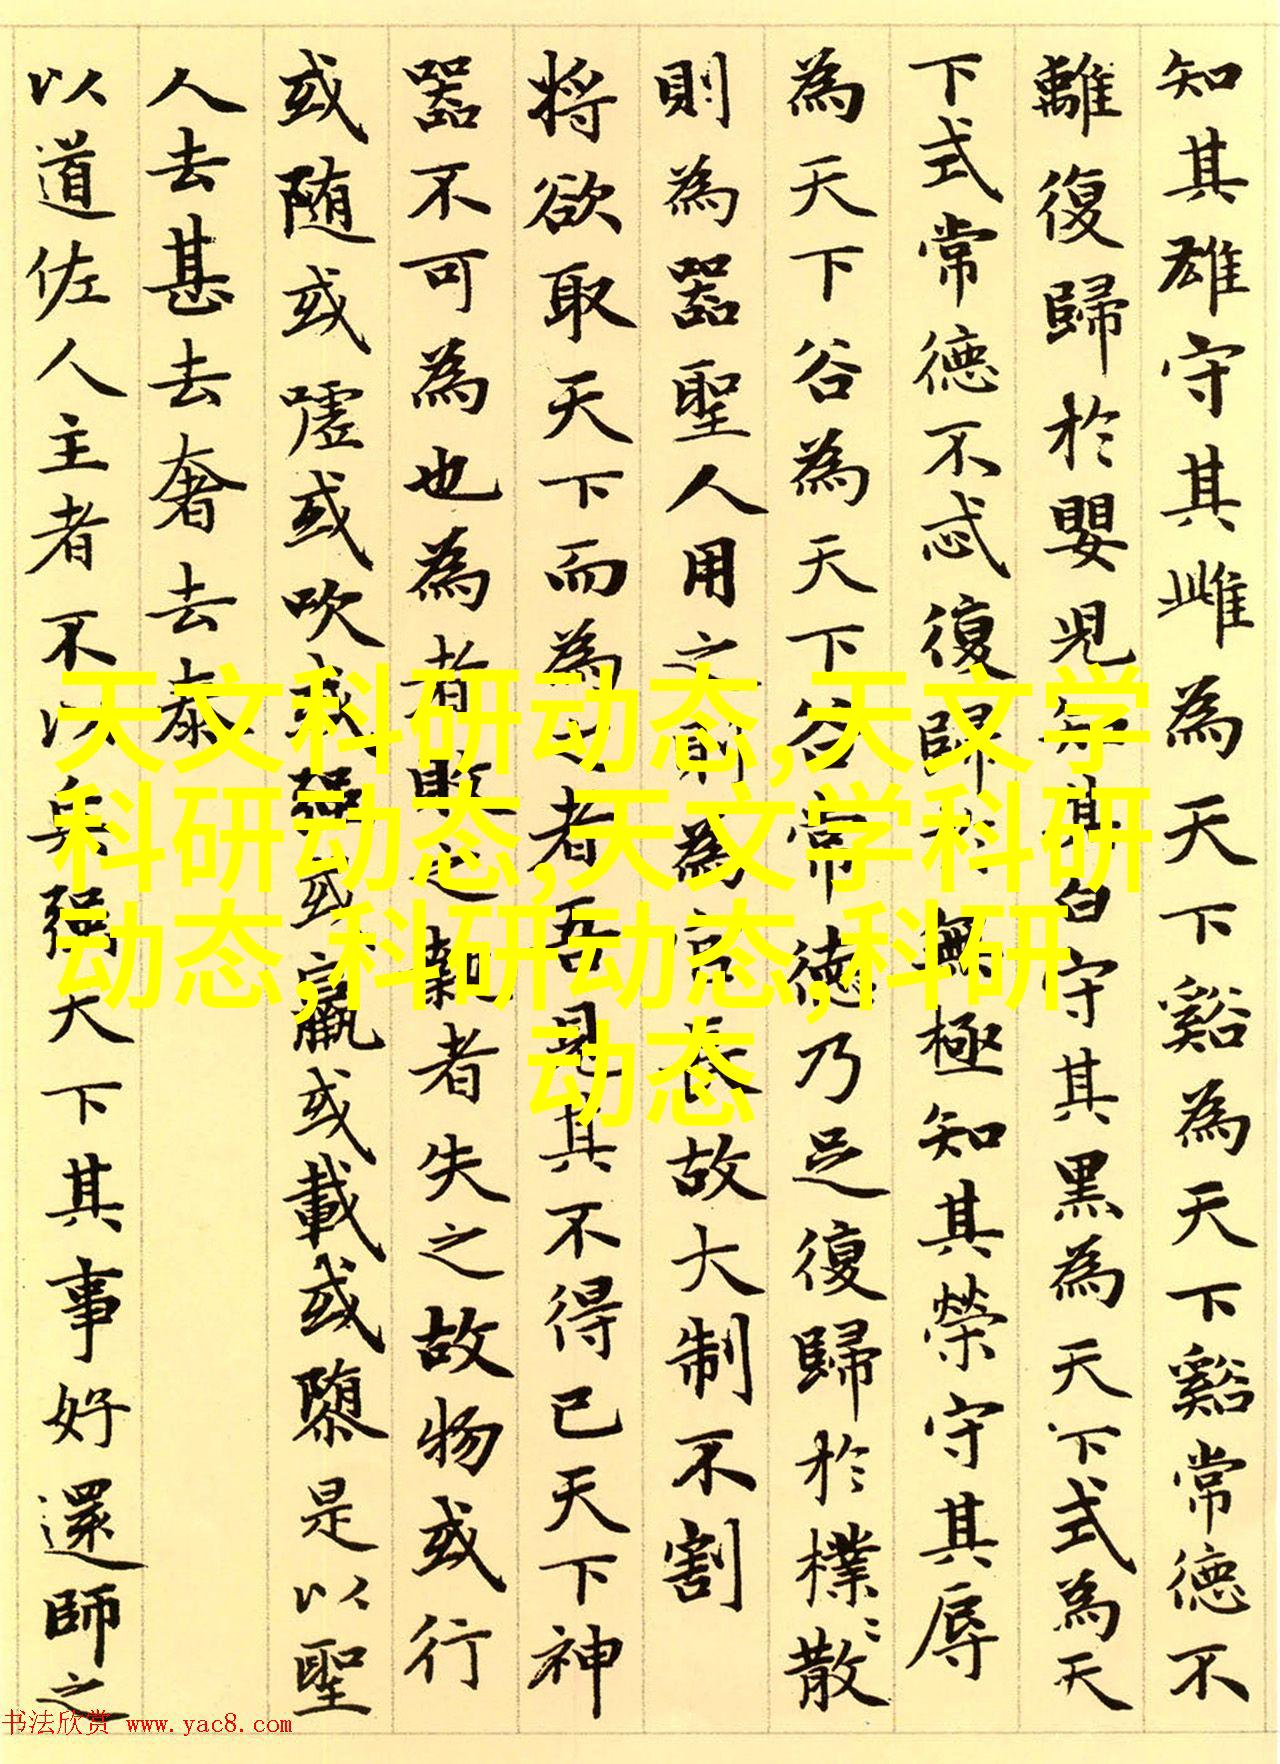 知其雄守其雌為天下谿為天下谿常德不
離復歸於嬰兒知其白守其黑為天下式為天
下式常德不忒復歸於無極知其榮守其辱
為天下谷為天下谷常德乃足復歸於樸〻散
則為器聖人用之則為官長故大制不割
將欲取天下而為之者吾見其不得已天下神
器不可為也為者敗之執者失之故物或行
或随或嘘或吹或强或羸或載或隳是以聖
人去甚去奢去泰
以道佐人主者不以兵强天下其事好還師之
天文科研动态,天文学
科研动态,天文学科研
动态,科研动态,科研
动态
书法欣赏 www.yac8.com